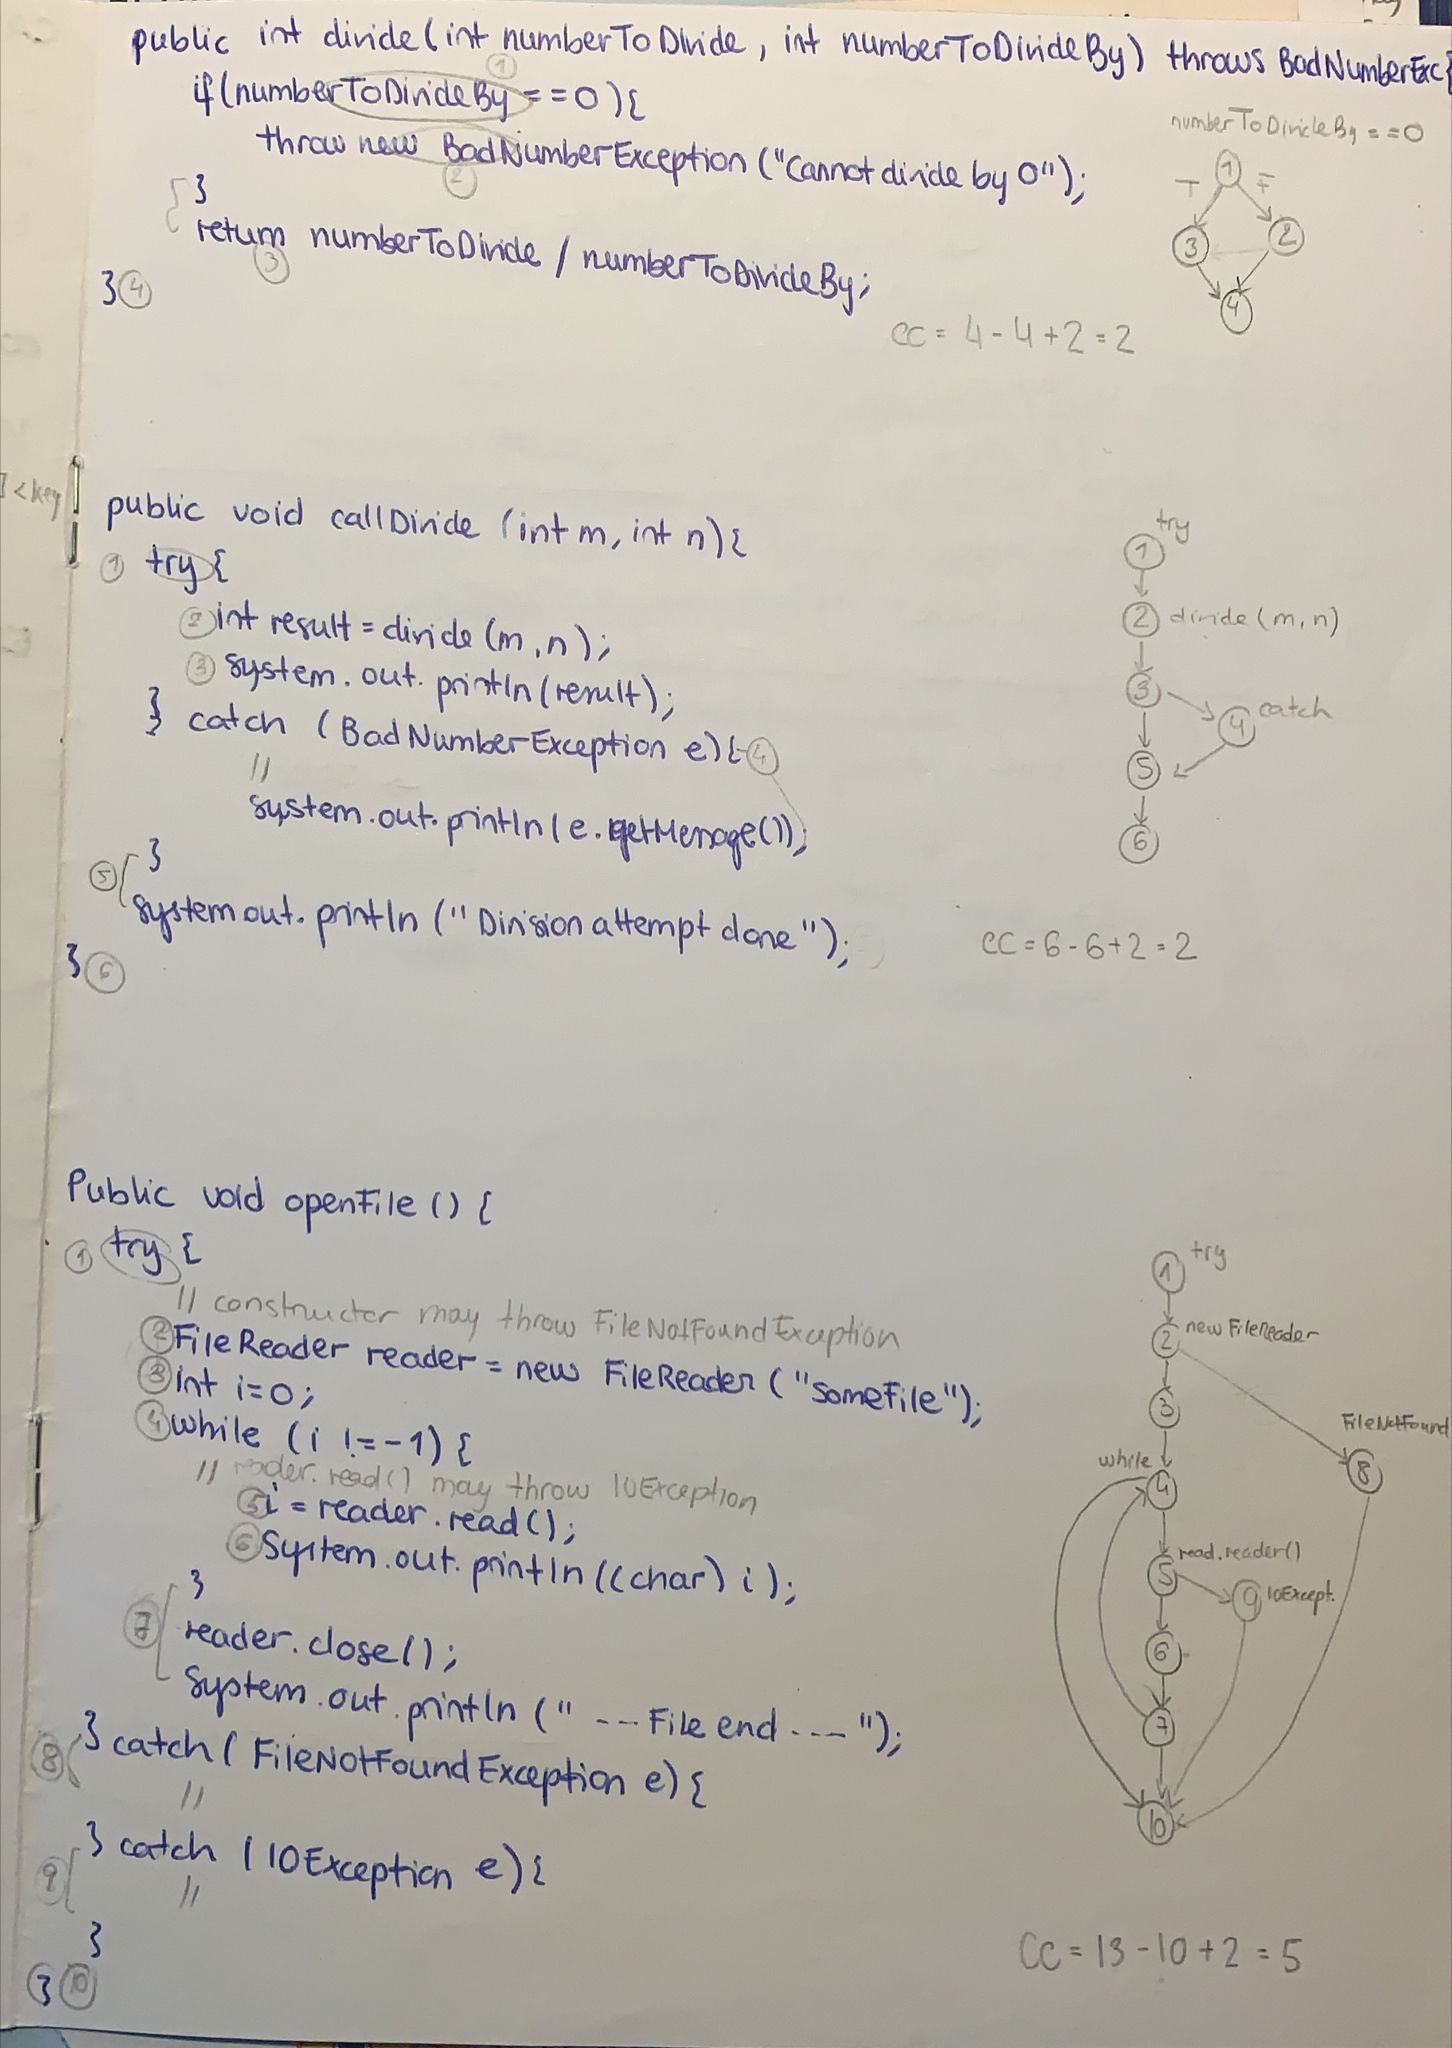 public int divide(int numberToDivide, int numberToDivideBy) throws BadNumberExc{
1
if(numberToDivideBy ==0){
throw new BadNumberException("Cannot divide by 0");
2
}
return numberToDivide / numberToDivideBy;
3
} 4
numberToDivideBy ==0
1
T F
3 2
4
CC = 4-4+2=2
I<key
public void callDivide (int m, int n){
1 try{
2 int result = divide (m,n);
3 system.out.println(result);
} catch (BadNumberException e){ 4
//
system.out.println(e.getMessage());
}
5
system out.println ("Division attempt done");
} 6
try
1
2 divide(m,n)
3
4 catch
5
6
CC=6-6+2=2
Public void openFile () {
1 try {
// constructer may throw FileNotFoundException
2 FileReader reader = new FileReader ("someFile");
3 int i=0;
4 while (i !=-1) {
// reader.read() may throw IOException
5 i = reader.read();
6 System.out.println((char) i);
}
7 reader.close();
system.out.println (" --File end --- ");
8 } catch( FileNotFoundException e){
//
9 } catch (IOException e){
//
}
} 10
1 try
2 newFileReader
3
FileNotFound
while
4 8
read.reader()
5 9 IOExcept.
6
7
10
CC = 13-10+2=5